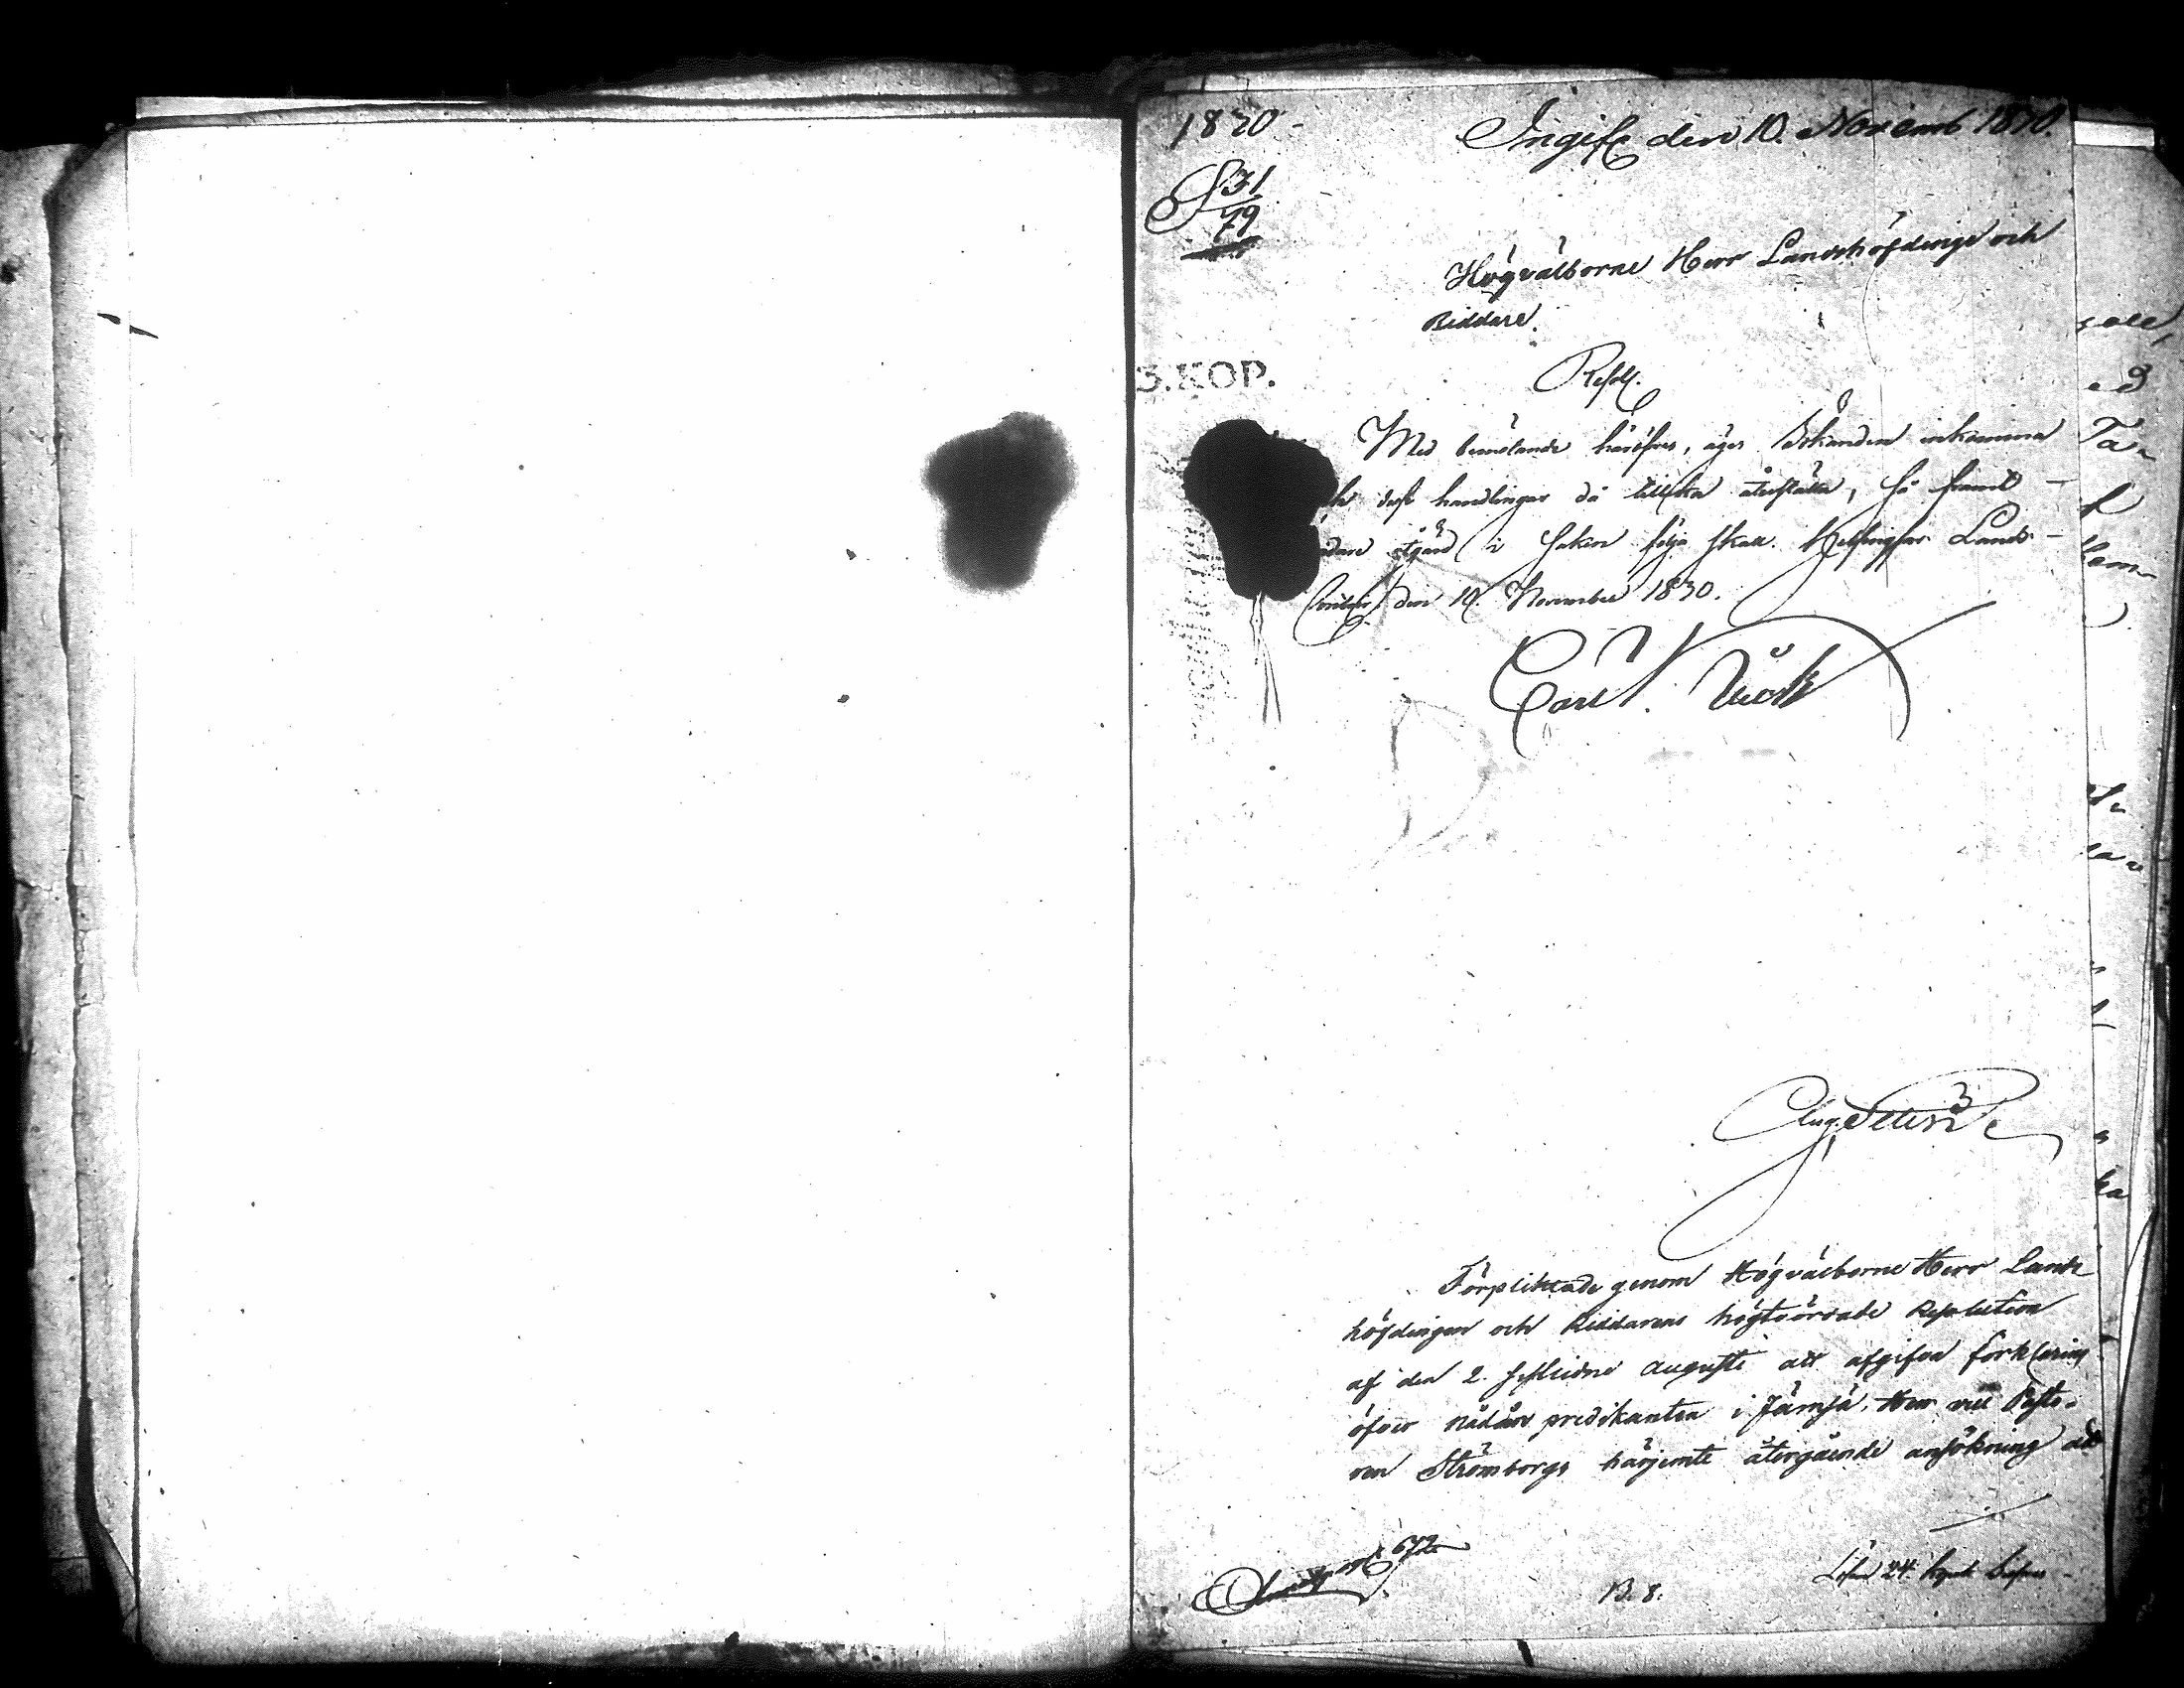 1830
Ingifv. den 10. Novemb 1830.
S 31
79
Högvälborne Herr Landshöfdinge och
Riddare.
3.KOP.
Resol.
Med bemötande häröfver, äger Sökanden inkomma
dess handlingar då tillika återställa, så framt
åtgärd i saken följa skall. Helsingfors Lands-
Contoir den 10. November 1830.
Carl
Förpliktade genom Högvälborne Herr Lands
höfdingen och Riddarens högtvördade Resolution
af den 2. sistledne Augusti att afgifva förklaring
öfver nådårs predikanten i Jämsä, Herr vice Pasto-
ren Strömborgs härjemte återgående ansökning att
672
B. 8.
Lösen 24 kopek